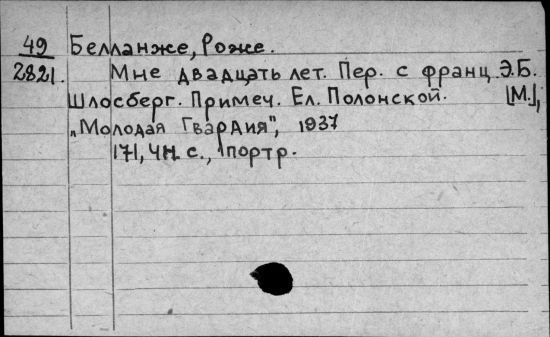 49 Белланже, Роже.
2821. Мне двадцать лет. Пер. с франц. Э.Б.
Шлосберг. Примеч. Ел. Полонской. [М.],
„Молодая Гвардия", 1937
171, 4н. с., портр.